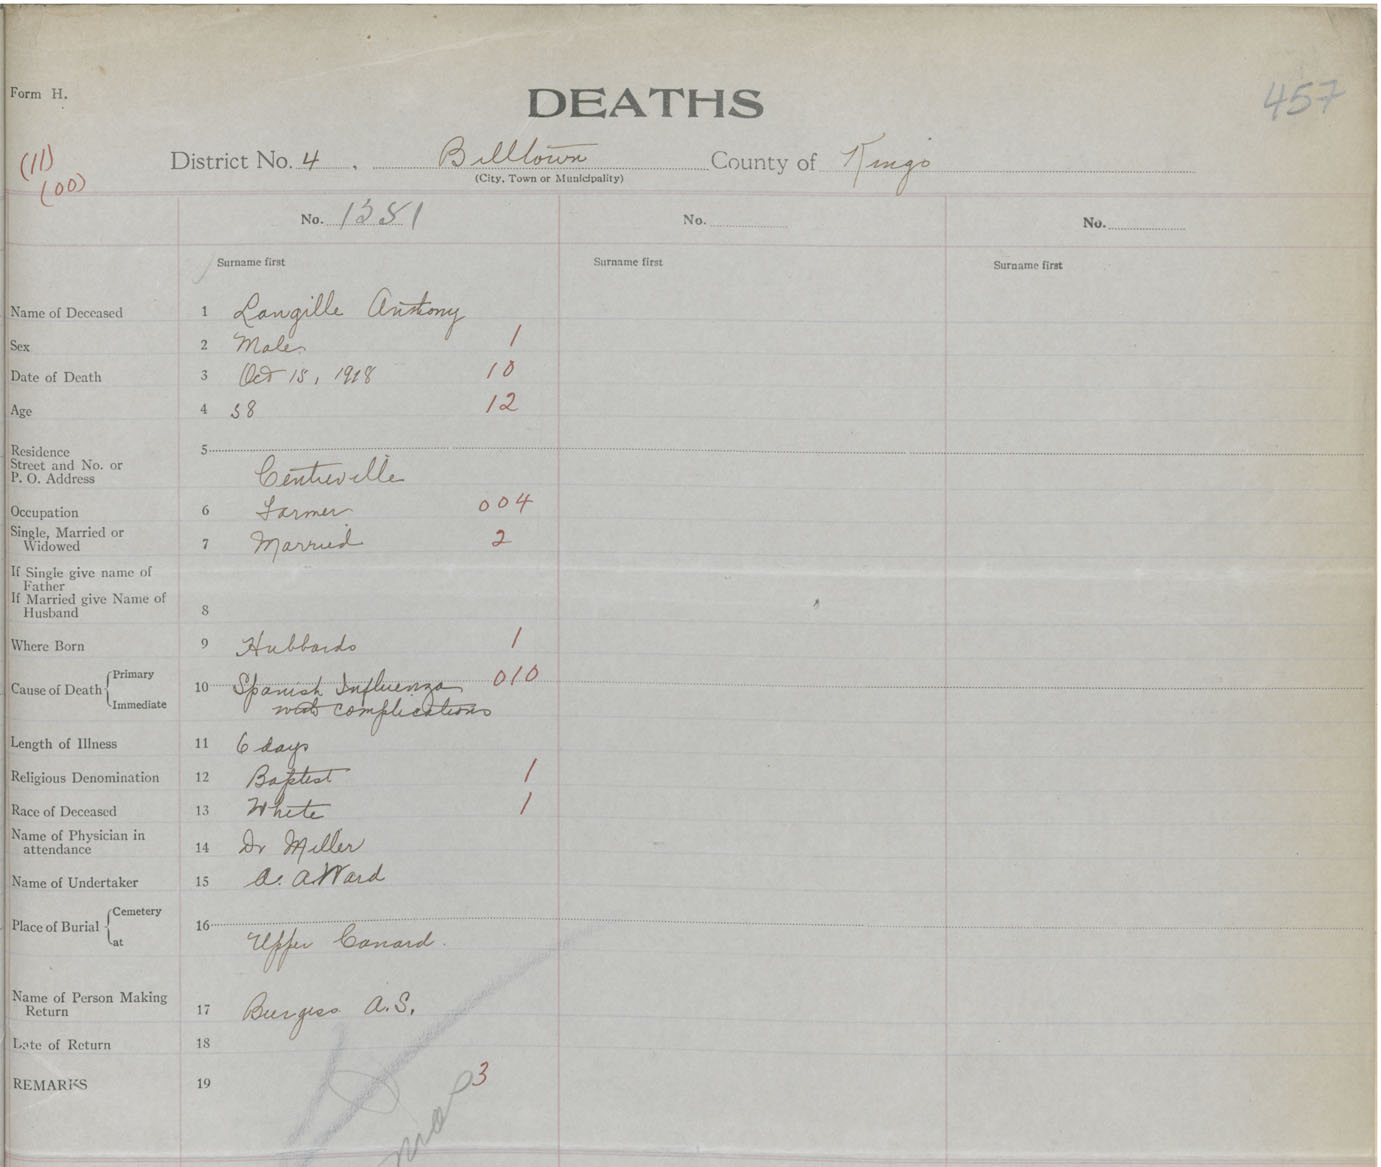 Form H.
DEATHS
457
(11)
(00)
District No. 4, Billtown County of Kings
(City, Town or Municipality)
No. 1351 No. No.
Surname first Surname first Surname first
Name of Deceased 1 Langille Anthony
Sex 2 Male 1
Date of Death 3 Oct 15, 1918 10
Age 4 38 12
Residence 5
Street and No. or
P. O. Address Centreville
Occupation 6 Farmer 004
Single, Married or
Widowed 7 Married 2
If Single give name of
Father
If Married give Name of
Husband 8
Where Born 9 Hubbards 1
Cause of Death Primary
Immediate 10 Spanish Influenza 010
with complications
Length of Illness 11 6 days
Religious Denomination 12 Baptist 1
Race of Deceased 13 White 1
Name of Physician in
attendance 14 Dr Miller
Name of Undertaker 15 A. A Ward
Place of Burial Cemetery
at 16 Upper Canard.
Name of Person Making
Return 17 Burgess A.S.
Date of Return 18
REMARKS 19 3